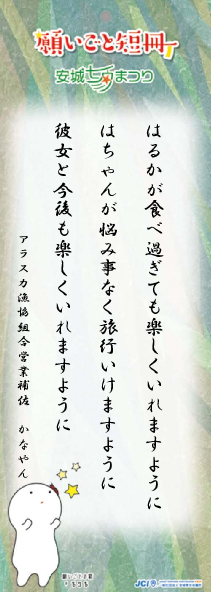 願いごと短冊
安城七夕まつり
はるかが食べ過ぎても楽しくいれますように
はちゃんが悩み事なく旅行いけますように
彼女と今後も楽しくいれますように
アラスカ漁協組合営業補佐 かなやん
JCI